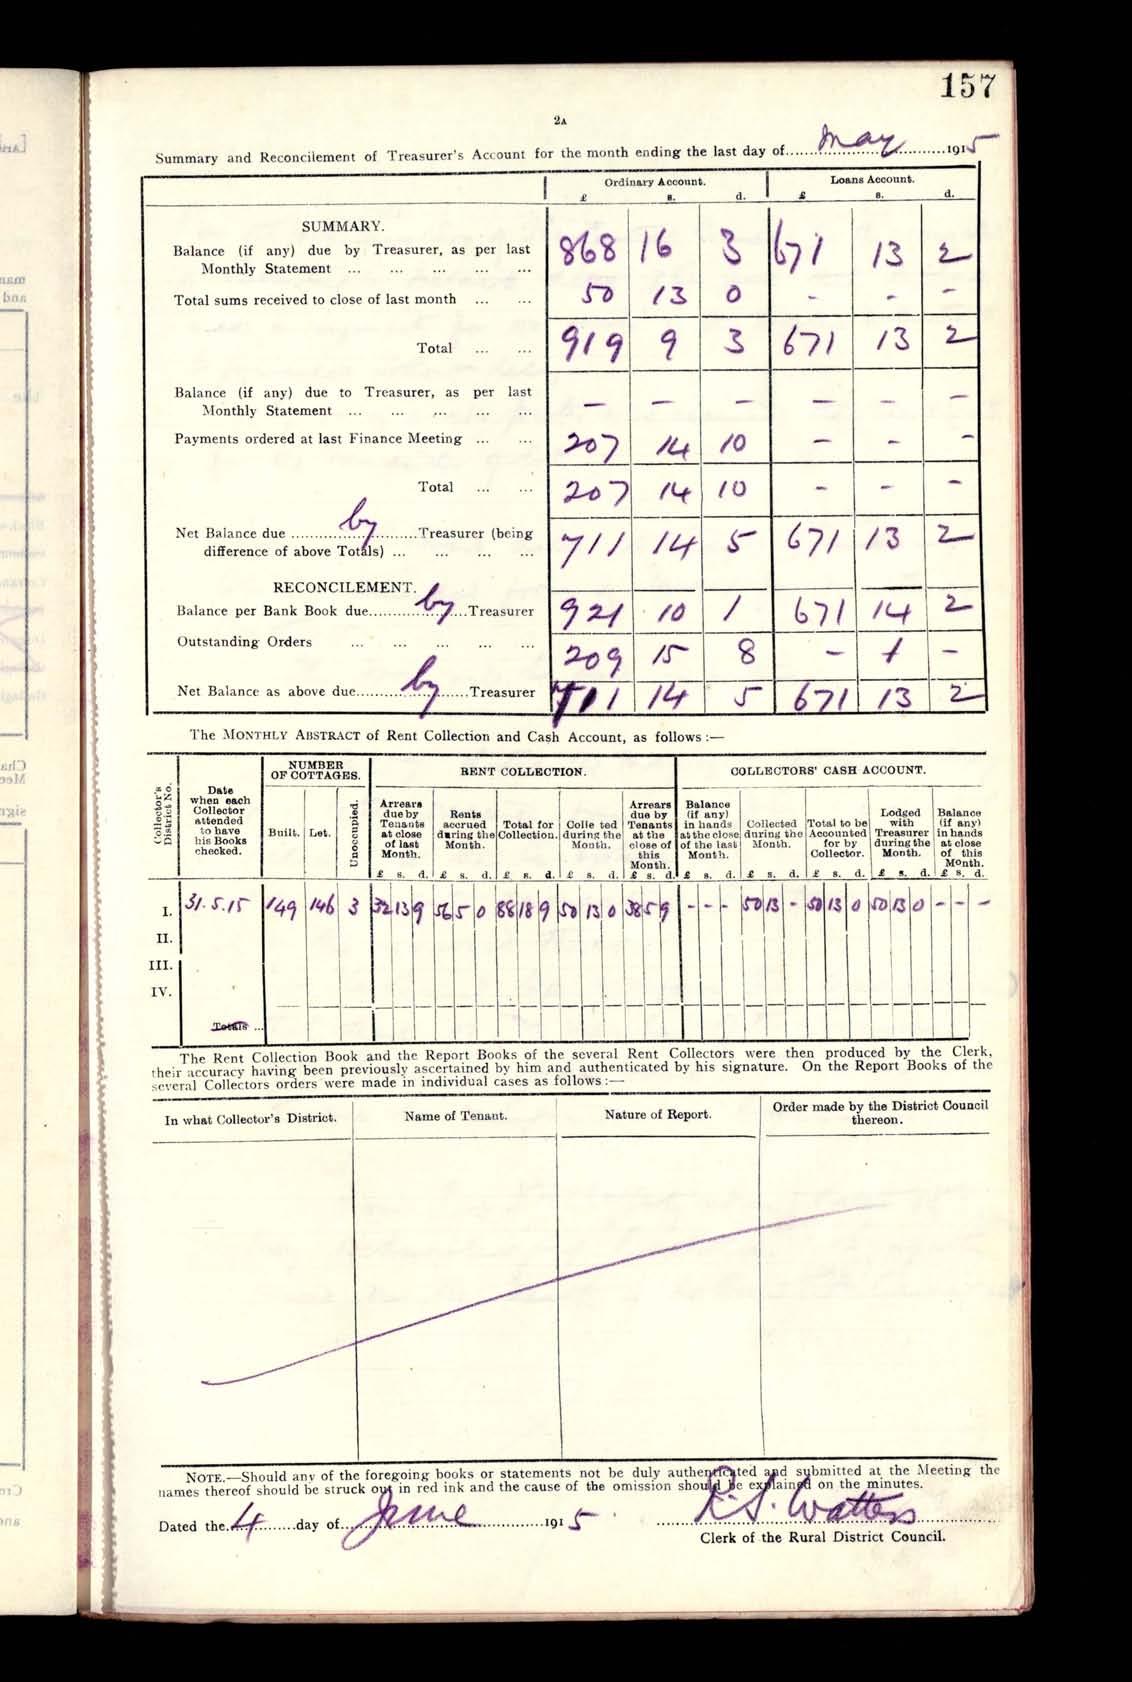 157
2A
Summary and Reconcilement of Treasurer's Account for the month ending the last day of May 1915
Ordinary Account. Loans Account.
£ s. d. £ s. d.
SUMMARY.
Balance (if any) due by Treasurer, as per last
Monthly Statement ... ... ... ... ... 868 16 3 671 13 2
Total sums received to close of last month ... ... 50 13 0 - - -
Total ... ... 919 9 3 671 13 2
Balance (if any) due to Treasurer, as per last
Monthly Statement ... ... ... ... ... — — — — — —
Payments ordered at last Finance Meeting ... ... 207 14 10 - - -
Total ... ... 207 14 10 - - -
Net Balance due by Treasurer (being
difference of above Totals) ... ... ... ... 711 14 5 671 13 2
RECONCILEMENT.
Balance per Bank Book due by Treasurer 921 10 1 671 14 2
Outstanding Orders ... ... ... ... ... 209 15 8 - 1 -
Net Balance as above due by Treasurer 711 14 5 671 13 2
The MONTHLY ABSTRACT of Rent Collection and Cash Account, as follows :—
Collector's District No.
Date when each Collector attended to have his Books checked.
NUMBER OF COTTAGES.
Built. Let. Unoccupied.
RENT COLLECTION.
Arrears due by Tenants at close of last Month. £ s. d.
Rents accrued during the Month. £ s. d.
Total for Collection. £ s. d.
Colle ted during the Month. £ s. d.
Arrears due by Tenants at the close of this Month. £ s. d.
COLLECTORS' CASH ACCOUNT.
Balance (if any) in hands at the close of the last Month. £ s. d.
Collected during the Month. £ s. d.
Total to be Accounted for by Collector. £ s. d.
Lodged with Treasurer during the Month. £ s. d.
Balance (if any) in hands at close of this Month. £ s. d.
I. 31.5.15 149 146 3 32 13 9 56 5 0 88 18 9 50 13 0 38 5 9 - - - 50 13 - 50 13 0 50 13 0 - - -
II.
III.
IV.
Totals ...
The Rent Collection Book and the Report Books of the several Rent Collectors were then produced by the Clerk,
their accuracy having been previously ascertained by him and authenticated by his signature. On the Report Books of the
several Collectors orders were made in individual cases as follows :—
In what Collector's District. Name of Tenant. Nature of Report. Order made by the District Council
thereon.
NOTE.—Should any of the foregoing books or statements not be duly authenticated and submitted at the Meeting the
names thereof should be struck out in red ink and the cause of the omission should be explained on the minutes.
Dated the 4 day of June 1915 R. S. Watters
Clerk of the Rural District Council.